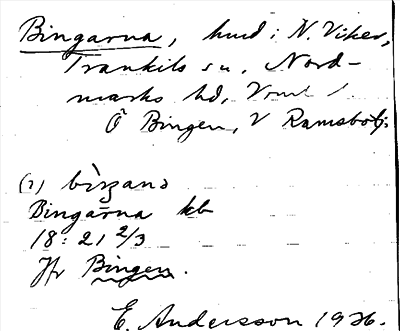 Bingarna, hmd i N. Viker,
Trankils sn, Nord-
marks hd, Vrml
Ö Bingen, V Ramsbol
(1) bìŋana
Bingarna kb
18: 21 2/3
Jfr Bingen.
E. Andersson 1926.